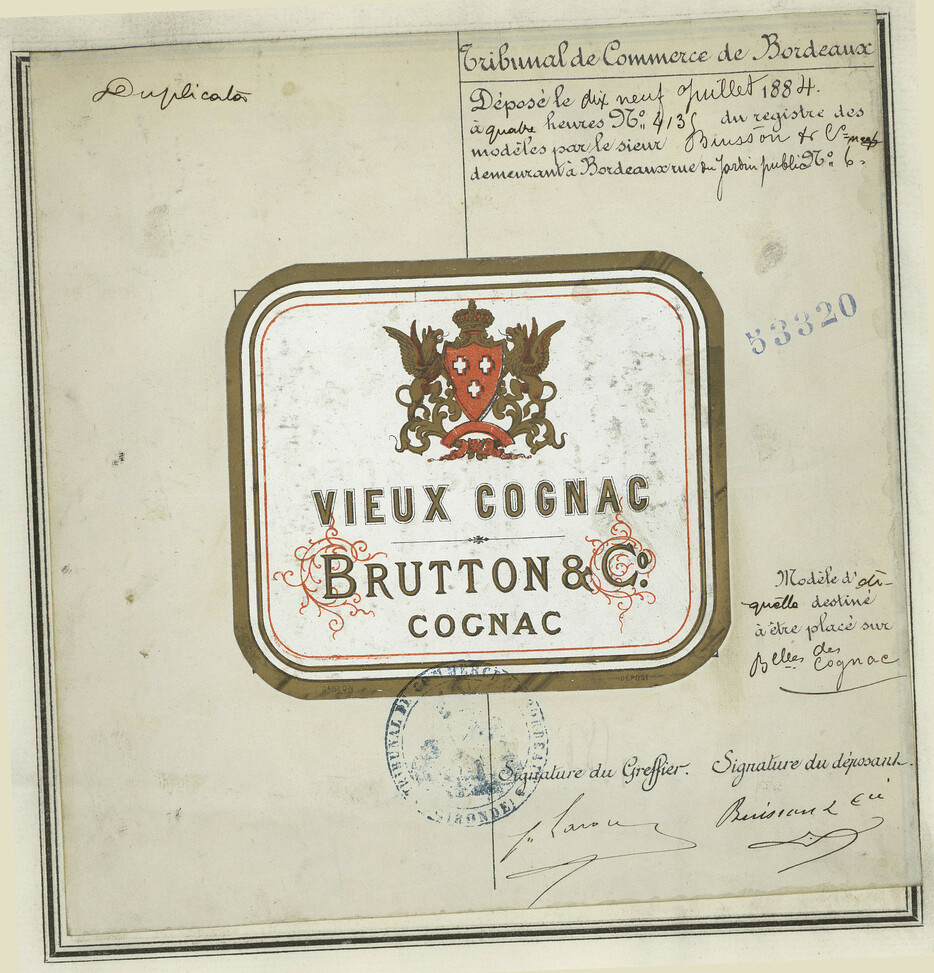 Duplicata
Tribunal de Commerce de Bordeaux
Déposé le dix neuf Juillet 1884.
à quatre heures No. 413 du registre des
modèles par le sieur Buisson & Cie
demeurant à Bordeaux rue du Jardin public No. 6.
53320
VIEUX COGNAC
BRUTTON & Co.
COGNAC
DÉPOSÉ
Modèle d'éti-
quette destiné
à être placé sur
Belles des
Cognac
TRIBUNAL DE COMMERCE DE BORDEAUX
GIRONDE
Signature du Greffier. Signature du déposant.
Buisson & Cie